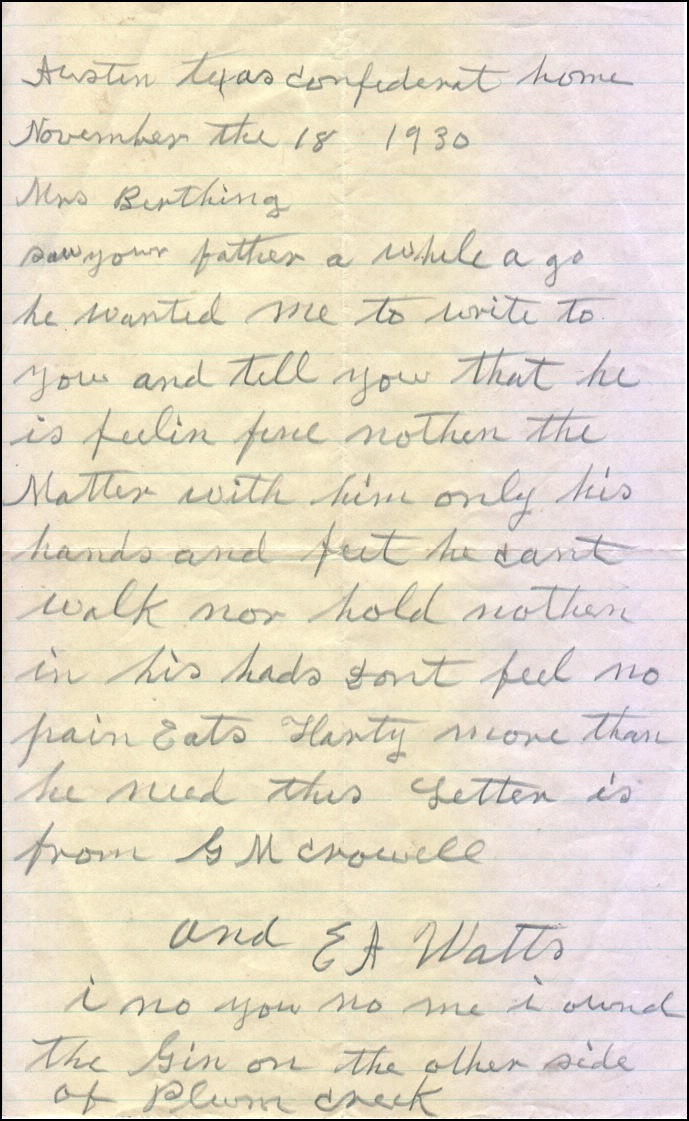 Austin texas confederat home
November the 18 1930
Mrs Berthing
saw your father a while a go
he wanted me to write to
you and tell you that he
is feelin fine nothen the
Matter with him only his
hands and feet he cant
walk nor hold nothen
in his hads dont feel no
pain Eats Harty more than
he need this Letter is
from G M Crowell
and E A Watts
i no you no me i ownd
the Gin on the other side
of Plum creek